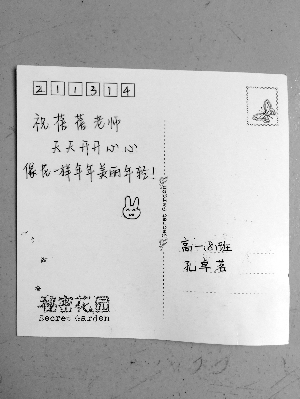 211314
祝蓓蓓老师
天天开开心心
像花一样年年美丽年轻!
Secret Garden
高一(8)班
孔卓茗
秘密花园
Secret Garden